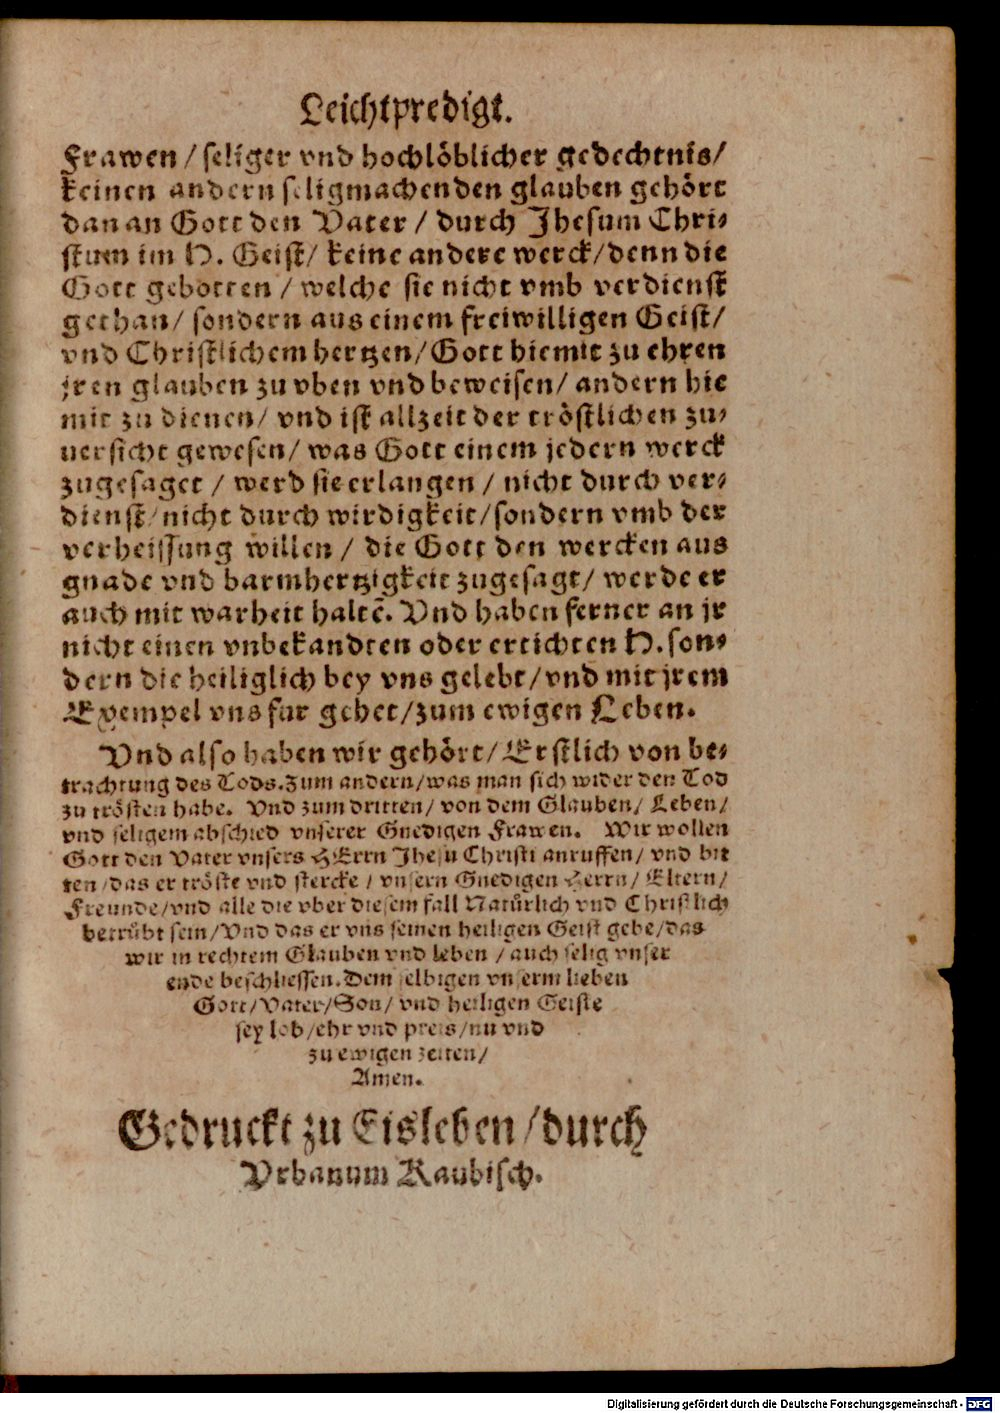 Leichtpredigt.
Frawen / seliger vnd hochlöblicher gedechtnis /
keinen andern seligmachenden glauben gehört
dan an Gott den Vater / durch Jhesum Chri⸗
stum im H. Geist / keine andere werck / denn die
Gott gebotten / welche sie nicht vmb verdienst
gethan / sondern aus einem freiwilligen Geist /
vnd Christlichem hertzen / Gott hiemit zu ehren
jren glauben zu vben vnd beweisen / andern hie
mit zu dienen / vnd ist allzeit der tröstlichen zu⸗
uersicht gewesen / was Gott einem jedern werck
zugesaget / werd sie erlangen / nicht durch ver⸗
dienst / nicht durch wirdigkeit / sondern vmb der
verheissung willen / die Gott den wercken aus
gnade vnd barmhertzigkeit zugesagt / werde er
auch mit warheit haltē. Vnd haben ferner an jr
nicht einen vnbekandten oder ertichten H. son⸗
dern die heiliglich bey vns gelebt / vnd mit jrem
Exempel vns fur gehet / zum ewigen Leben.
Vnd also haben wir gehört / Erstlich von be⸗
trachtung des Tods. Zum andern / was man sich wider den Tod
zu trösten habe. Vnd zum dritten / von dem Glauben / Leben /
vnd seligem abschied vnserer Gnedigen Frawen. Wir wollen
Gott den Vater vnsers HErrn Jhesu Christi anruffen / vnd bit
ten / das er tröste vnd stercke / vnsern Gnedigen Herrn / Eltern /
Freunde / vnd alle die vber diesem fall Natürlich vnd Christlich
betrübt sein / Vnd das er vns seinen heiligen Geist gebe / das
wir in rechtem Glauben vnd leben / auch selig vnser
ende beschliessen. Dem selbigen vnserm lieben
Gott / Vater / Son / vnd heiligen Geiste
sey lob / ehr vnd preis / nu vnd
zu ewigen zeiten /
Amen.
Gedruckt zu Eisleben / durch
Vrbanum Kaubisch.
Digitalisierung gefördert durch die Deutsche Forschungsgemeinschaft - DFG